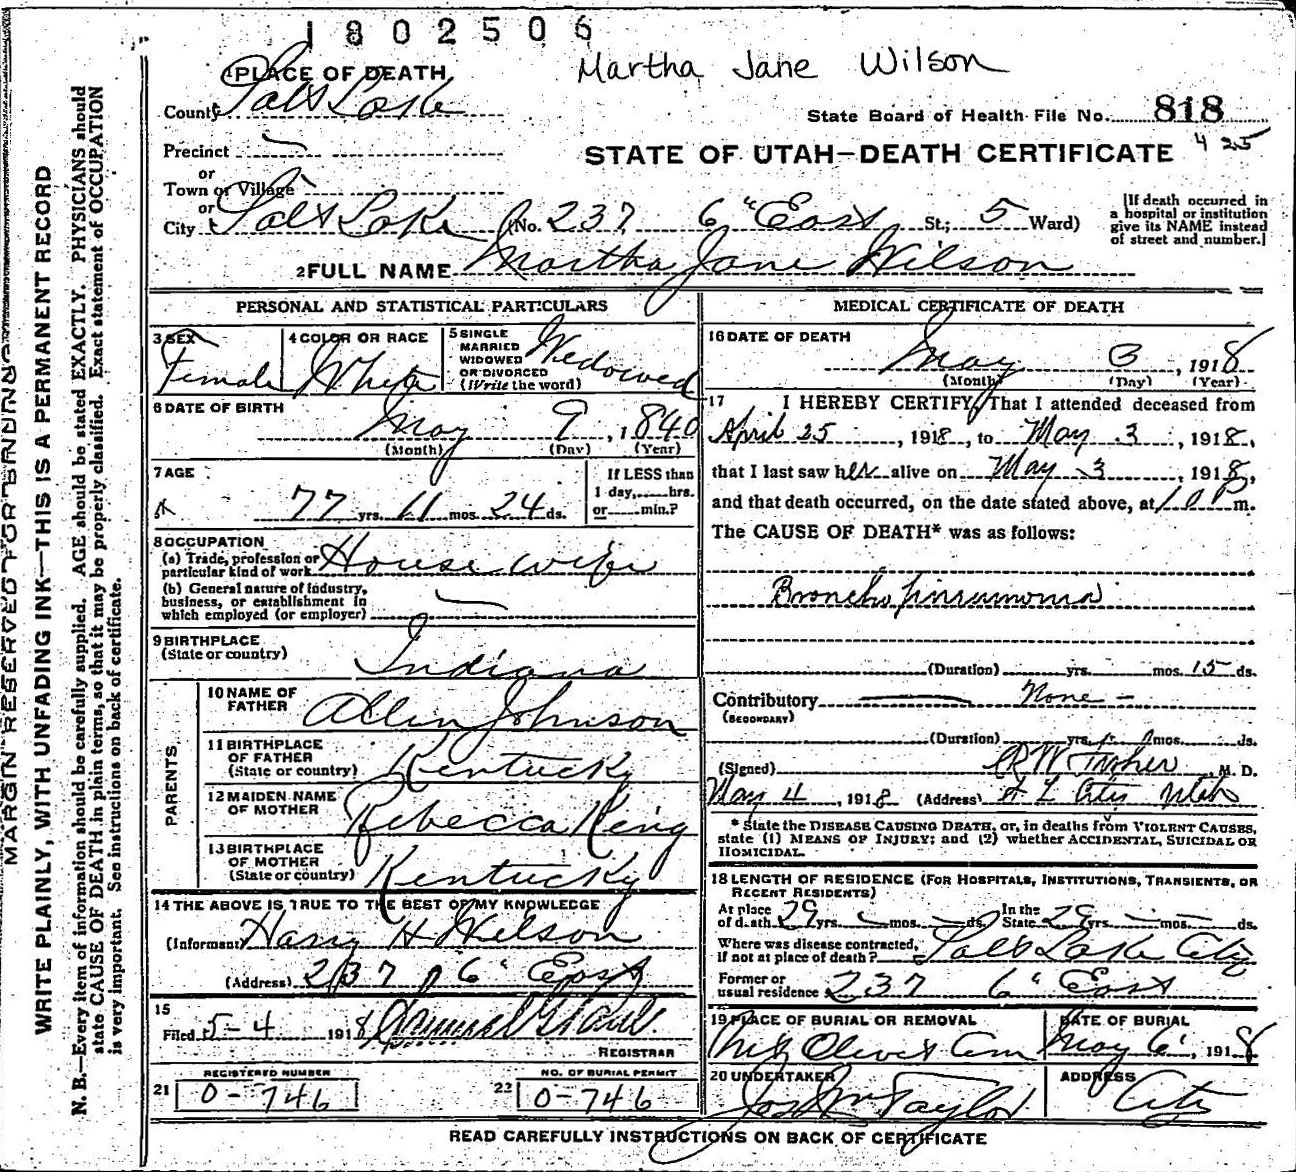 1802506
Martha Jane Wilson
1 PLACE OF DEATH
County Salt Lake
State Board of Health File No. 818
425
Precinct
or
Town or Village
or
STATE OF UTAH—DEATH CERTIFICATE
City Salt Lake (No. 237 6" East St.; 5 Ward)
[If death occurred in a hospital or institution give its NAME instead of street and number.]
2 FULL NAME Martha Jane Wilson
PERSONAL AND STATISTICAL PARTICULARS
3 SEX Female
4 COLOR OR RACE White
5 SINGLE MARRIED WIDOWED OR DIVORCED (Write the word) Widowed
6 DATE OF BIRTH May 9, 1840
(Month) (Day) (Year)
7 AGE 77 yrs. 11 mos. 24 ds.
If LESS than 1 day,......hrs. or......min.?
8 OCCUPATION
(a) Trade, profession or particular kind of work House wife
(b) General nature of industry, business, or establishment in which employed (or employer)
9 BIRTHPLACE (State or country) Indiana
PARENTS
10 NAME OF FATHER Allen Johnson
11 BIRTHPLACE OF FATHER (State or country) Kentucky
12 MAIDEN NAME OF MOTHER Rebecca King
13 BIRTHPLACE OF MOTHER (State or country) Kentucky
14 THE ABOVE IS TRUE TO THE BEST OF MY KNOWLEDGE
(Informant) Harry H Wilson
(Address) 237 6" East
15
Filed 5-4 1918
REGISTRAR
REGISTERED NUMBER
21 0-746
NO. OF BURIAL PERMIT
22 0-746
MEDICAL CERTIFICATE OF DEATH
16 DATE OF DEATH
May 3, 1918
(Month) (Day) (Year)
17 I HEREBY CERTIFY, That I attended deceased from
April 25, 1918, to May 3, 1918,
that I last saw her alive on May 3, 1918,
and that death occurred, on the date stated above, at 10 P m.
The CAUSE OF DEATH* was as follows:
Broncho pneumonia
(Duration) yrs. mos. 15 ds.
Contributory None
(SECONDARY)
(Duration) yrs. mos. ds.
(Signed) M. D.
May 4, 1918 (Address) S L City Utah
* State the DISEASE CAUSING DEATH, or, in deaths from VIOLENT CAUSES, state (1) MEANS OF INJURY; and (2) whether ACCIDENTAL, SUICIDAL OR HOMICIDAL.
18 LENGTH OF RESIDENCE (FOR HOSPITALS, INSTITUTIONS, TRANSIENTS, OR RECENT RESIDENTS)
At place of death 29 yrs. mos. ds. In the State 29 yrs. mos. ds.
Where was disease contracted, if not at place of death? Salt Lake City
Former or usual residence 237 6" East
19 PLACE OF BURIAL OR REMOVAL
Mt Olivet Cem
DATE OF BURIAL
May 6, 1918
20 UNDERTAKER
Jos Wm Taylor
ADDRESS
City
READ CAREFULLY INSTRUCTIONS ON BACK OF CERTIFICATE
MARGIN RESERVED FOR BINDING
WRITE PLAINLY, WITH UNFADING INK—THIS IS A PERMANENT RECORD
N. B.—Every item of information should be carefully supplied. AGE should be stated EXACTLY. PHYSICIANS should
state CAUSE OF DEATH in plain terms, so that it may be properly classified. Exact statement of OCCUPATION
is very important. See instructions on back of certificate.